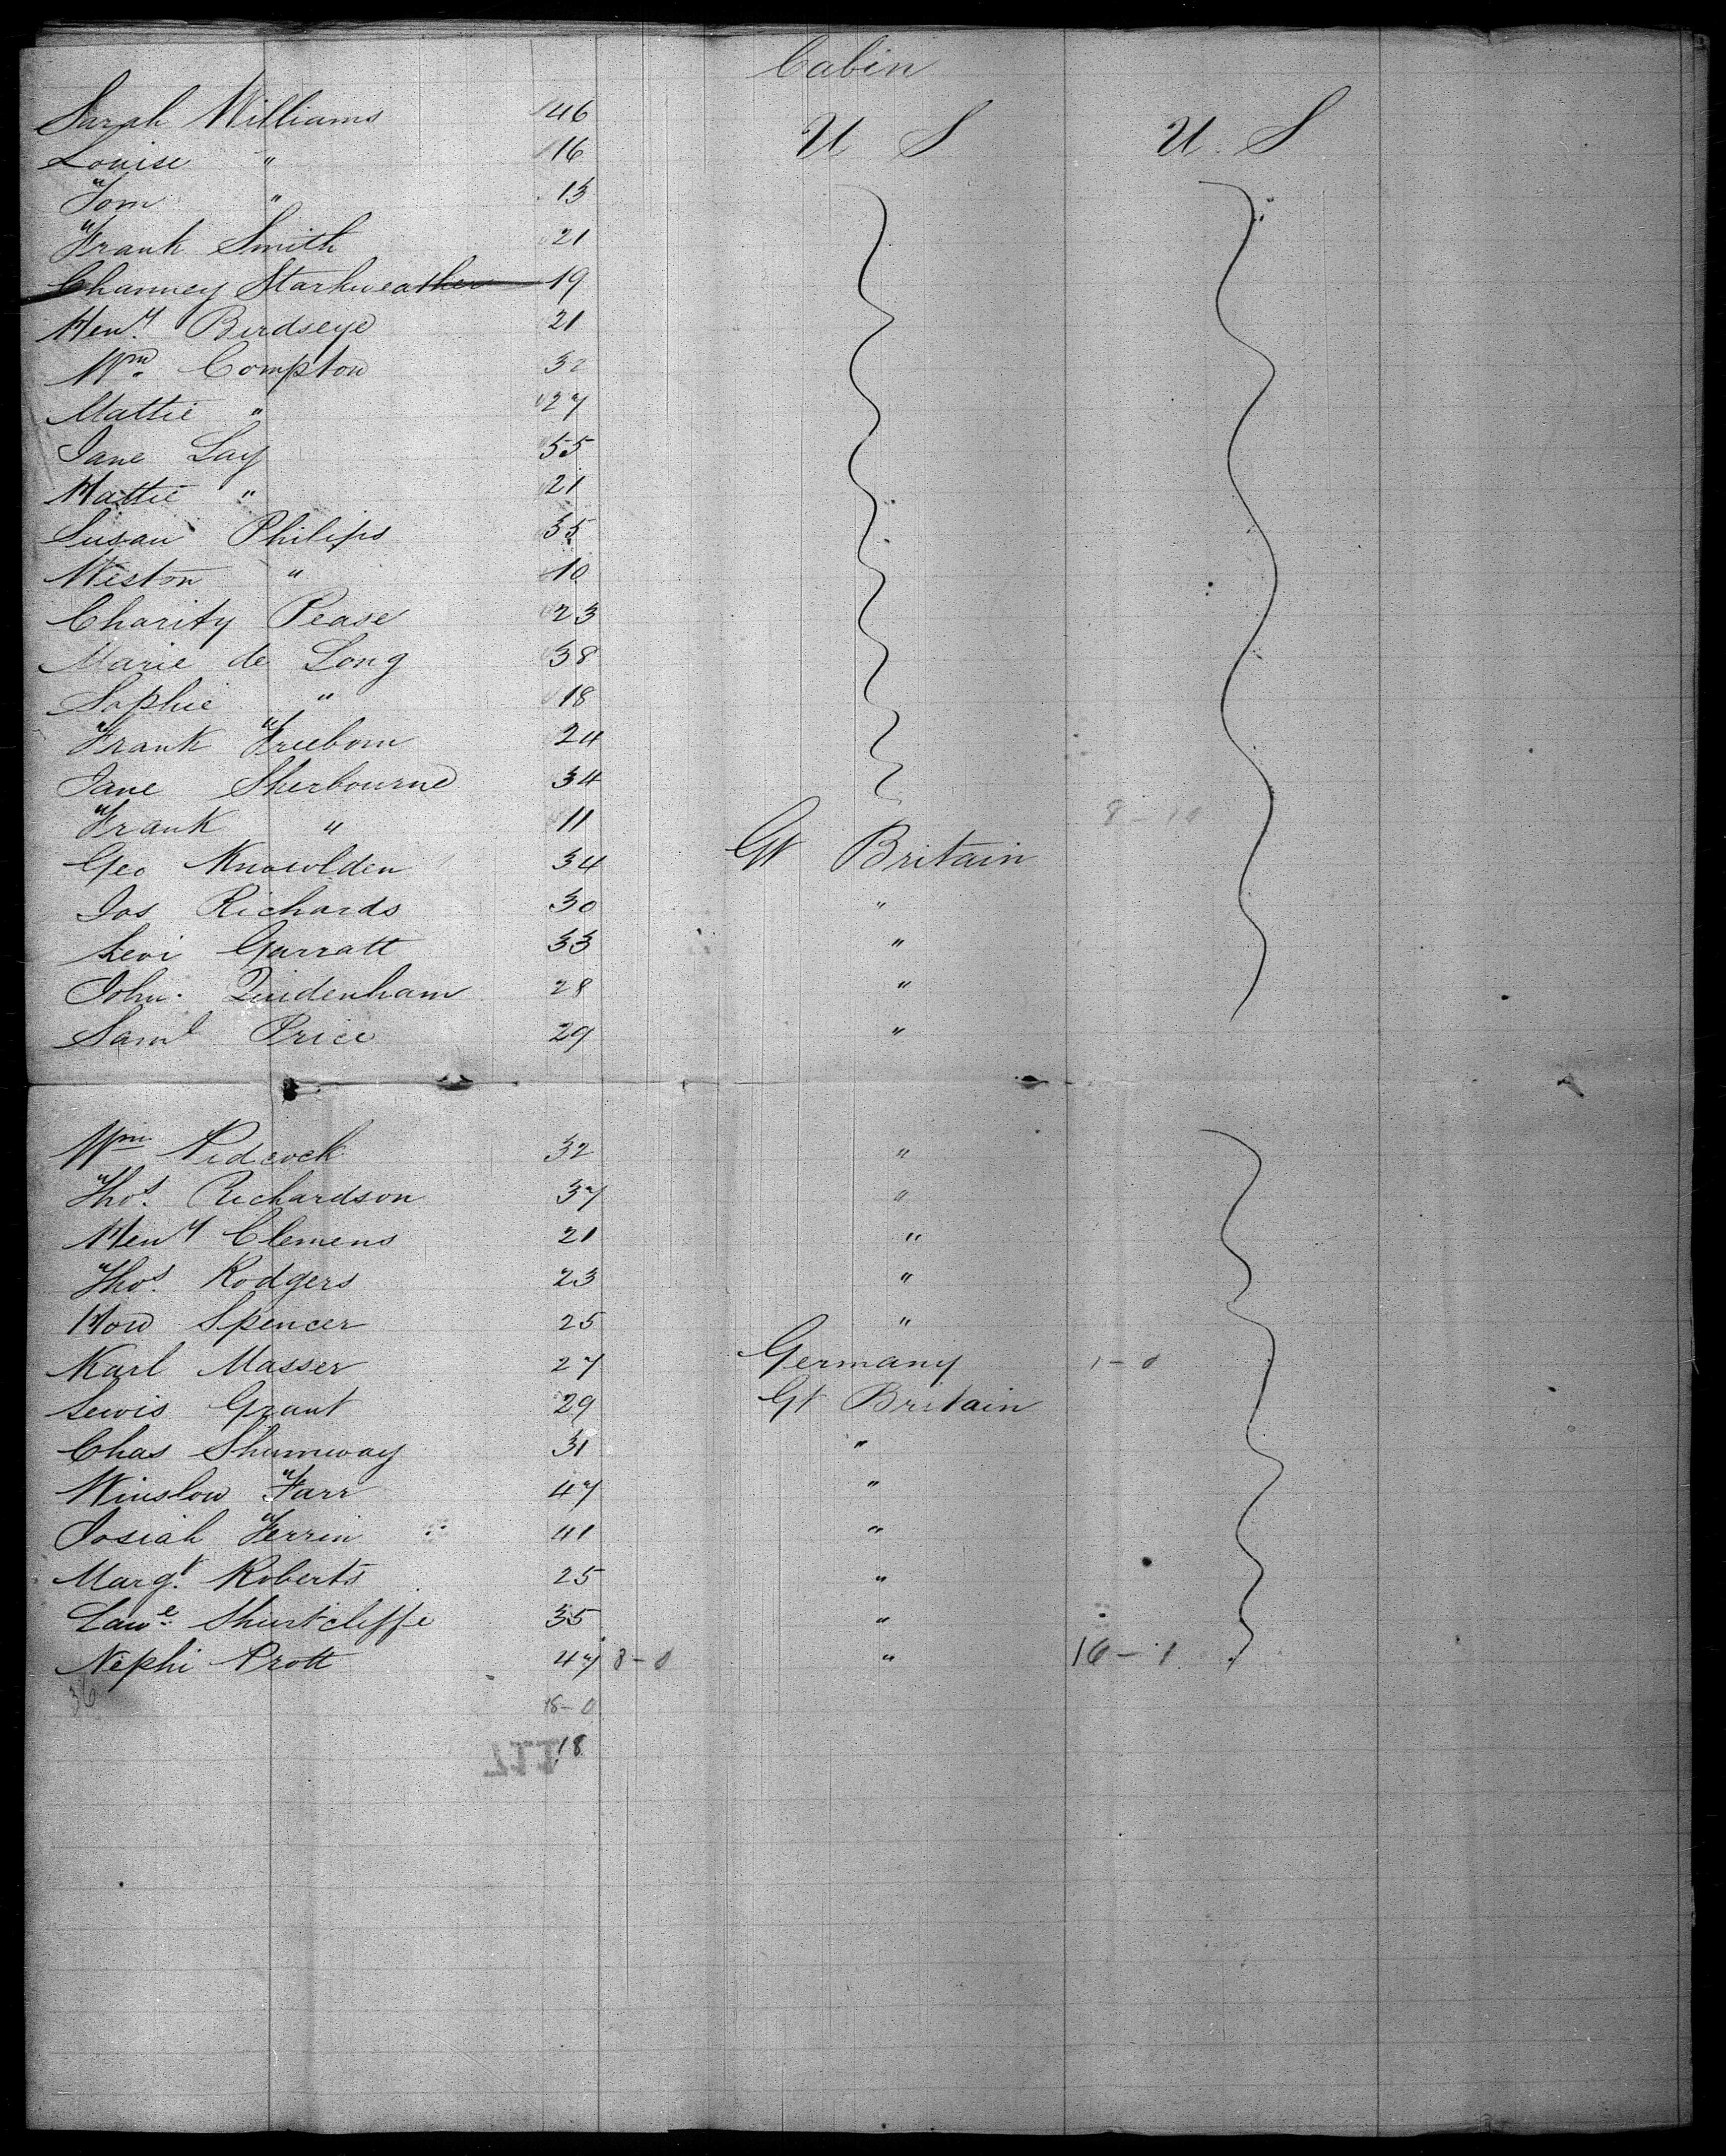 Cabin
Sarah Williams 46 U S U. S
Louise " 16
Tom " 13
Frank Smith 21
Channcy Starkweather 19
Heny. Birdseye 21
Wm. Compton 32
Mattie " 27
Jane Lay 55
Hattie " 21
Susan Philips 35
Weston " 10
Charity Pease 23
Marie de Long 38
Sophie " 18
Frank Freeborn 24
Jane Sherbourne 34
Frank " 11 8-10
Geo Knowlden 34 Gt Britain
Jos Richards 30 "
Levi Garratt 33 "
John. Quidenham 28 "
Saml Price 29 "
Wm Pidcock 32 "
Thos. Richardson 37 "
Heny Clemens 21 "
Thos. Rodgers 23 "
How Spencer 25 "
Karl Masser 27 Germany 1-0
Lewis Grant 29 Gt Britain
Chas Shumway 31 "
Winslow Farr 47 "
Josiah Ferrin 41 "
Margt. Roberts 25 "
Lawe. Shurtcliffe 35 "
Nephi Pratt 47 8-0 " 16-1
36 18-0
18